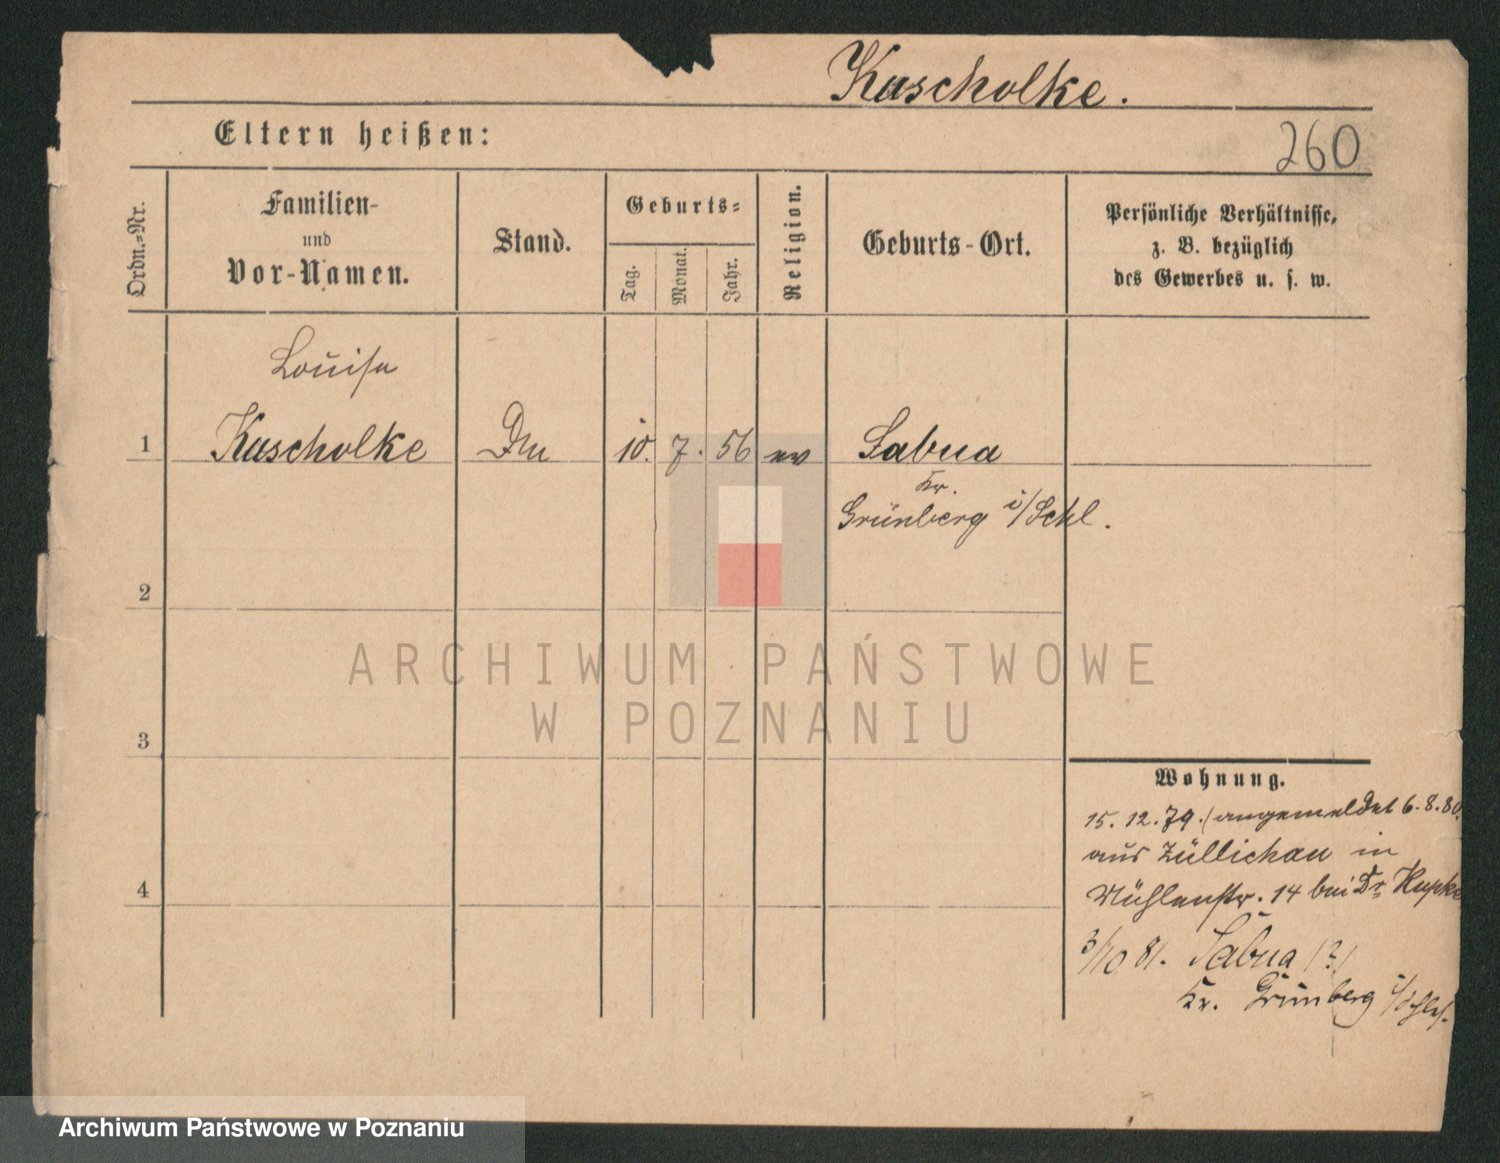 Kascholke.
Eltern heißen:
260
Ordn.=Nr.
Familien-
und
Vor-Namen.
Stand.
Geburts=
Tag.
Monat.
Jahr.
Religion.
Geburts-Ort.
Persönliche Verhältnisse,
z. B. bezüglich
des Gewerbes u. s. w.
Louise
1 Kascholke 10. 7. 56 ev Sabua
Kr.
Grünberg i/Schl.
2
ARCHIWUM PAŃSTWOWE
W POZNANIU
3
Wohnung.
15. 12. 79. / angemeldet 6. 8. 80.
aus Züllichau in
4
Mühlenstr. 14 bei Dr Kupke
3/10 81. Sabua (?)
Kr. Grünberg i/Schles.
Archiwum Państwowe w Poznaniu